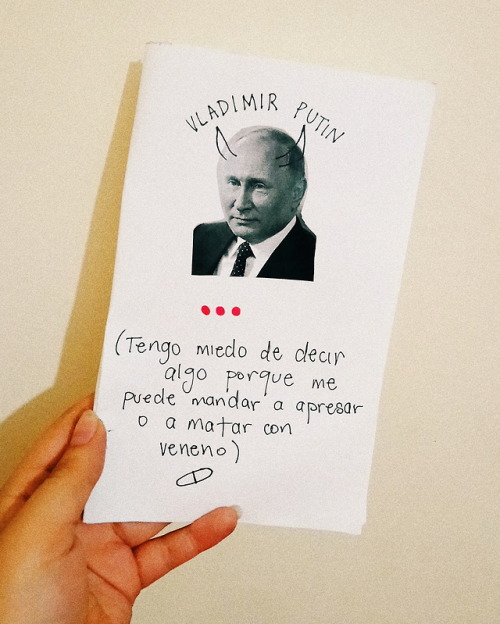 VLADIMIR PUTIN
...
(Tengo miedo de decir
algo porque me
puede mandar a apresar
o a matar con
veneno)